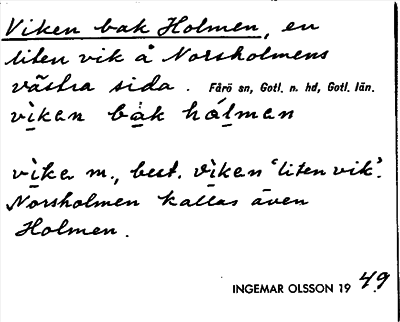 Viken bak Holmen, en
liten vik å Norsholmens
västra sida. Fårö sn, Gotl. n. hd, Gotl. län.
vi̱kȧn bȧ̱k hȧ́ḻmȧn

vi̱ka m., best. vi̱kȧn 'liten vik'.
Norsholmen kallas även
Holmen.
INGEMAR OLSSON 19 49